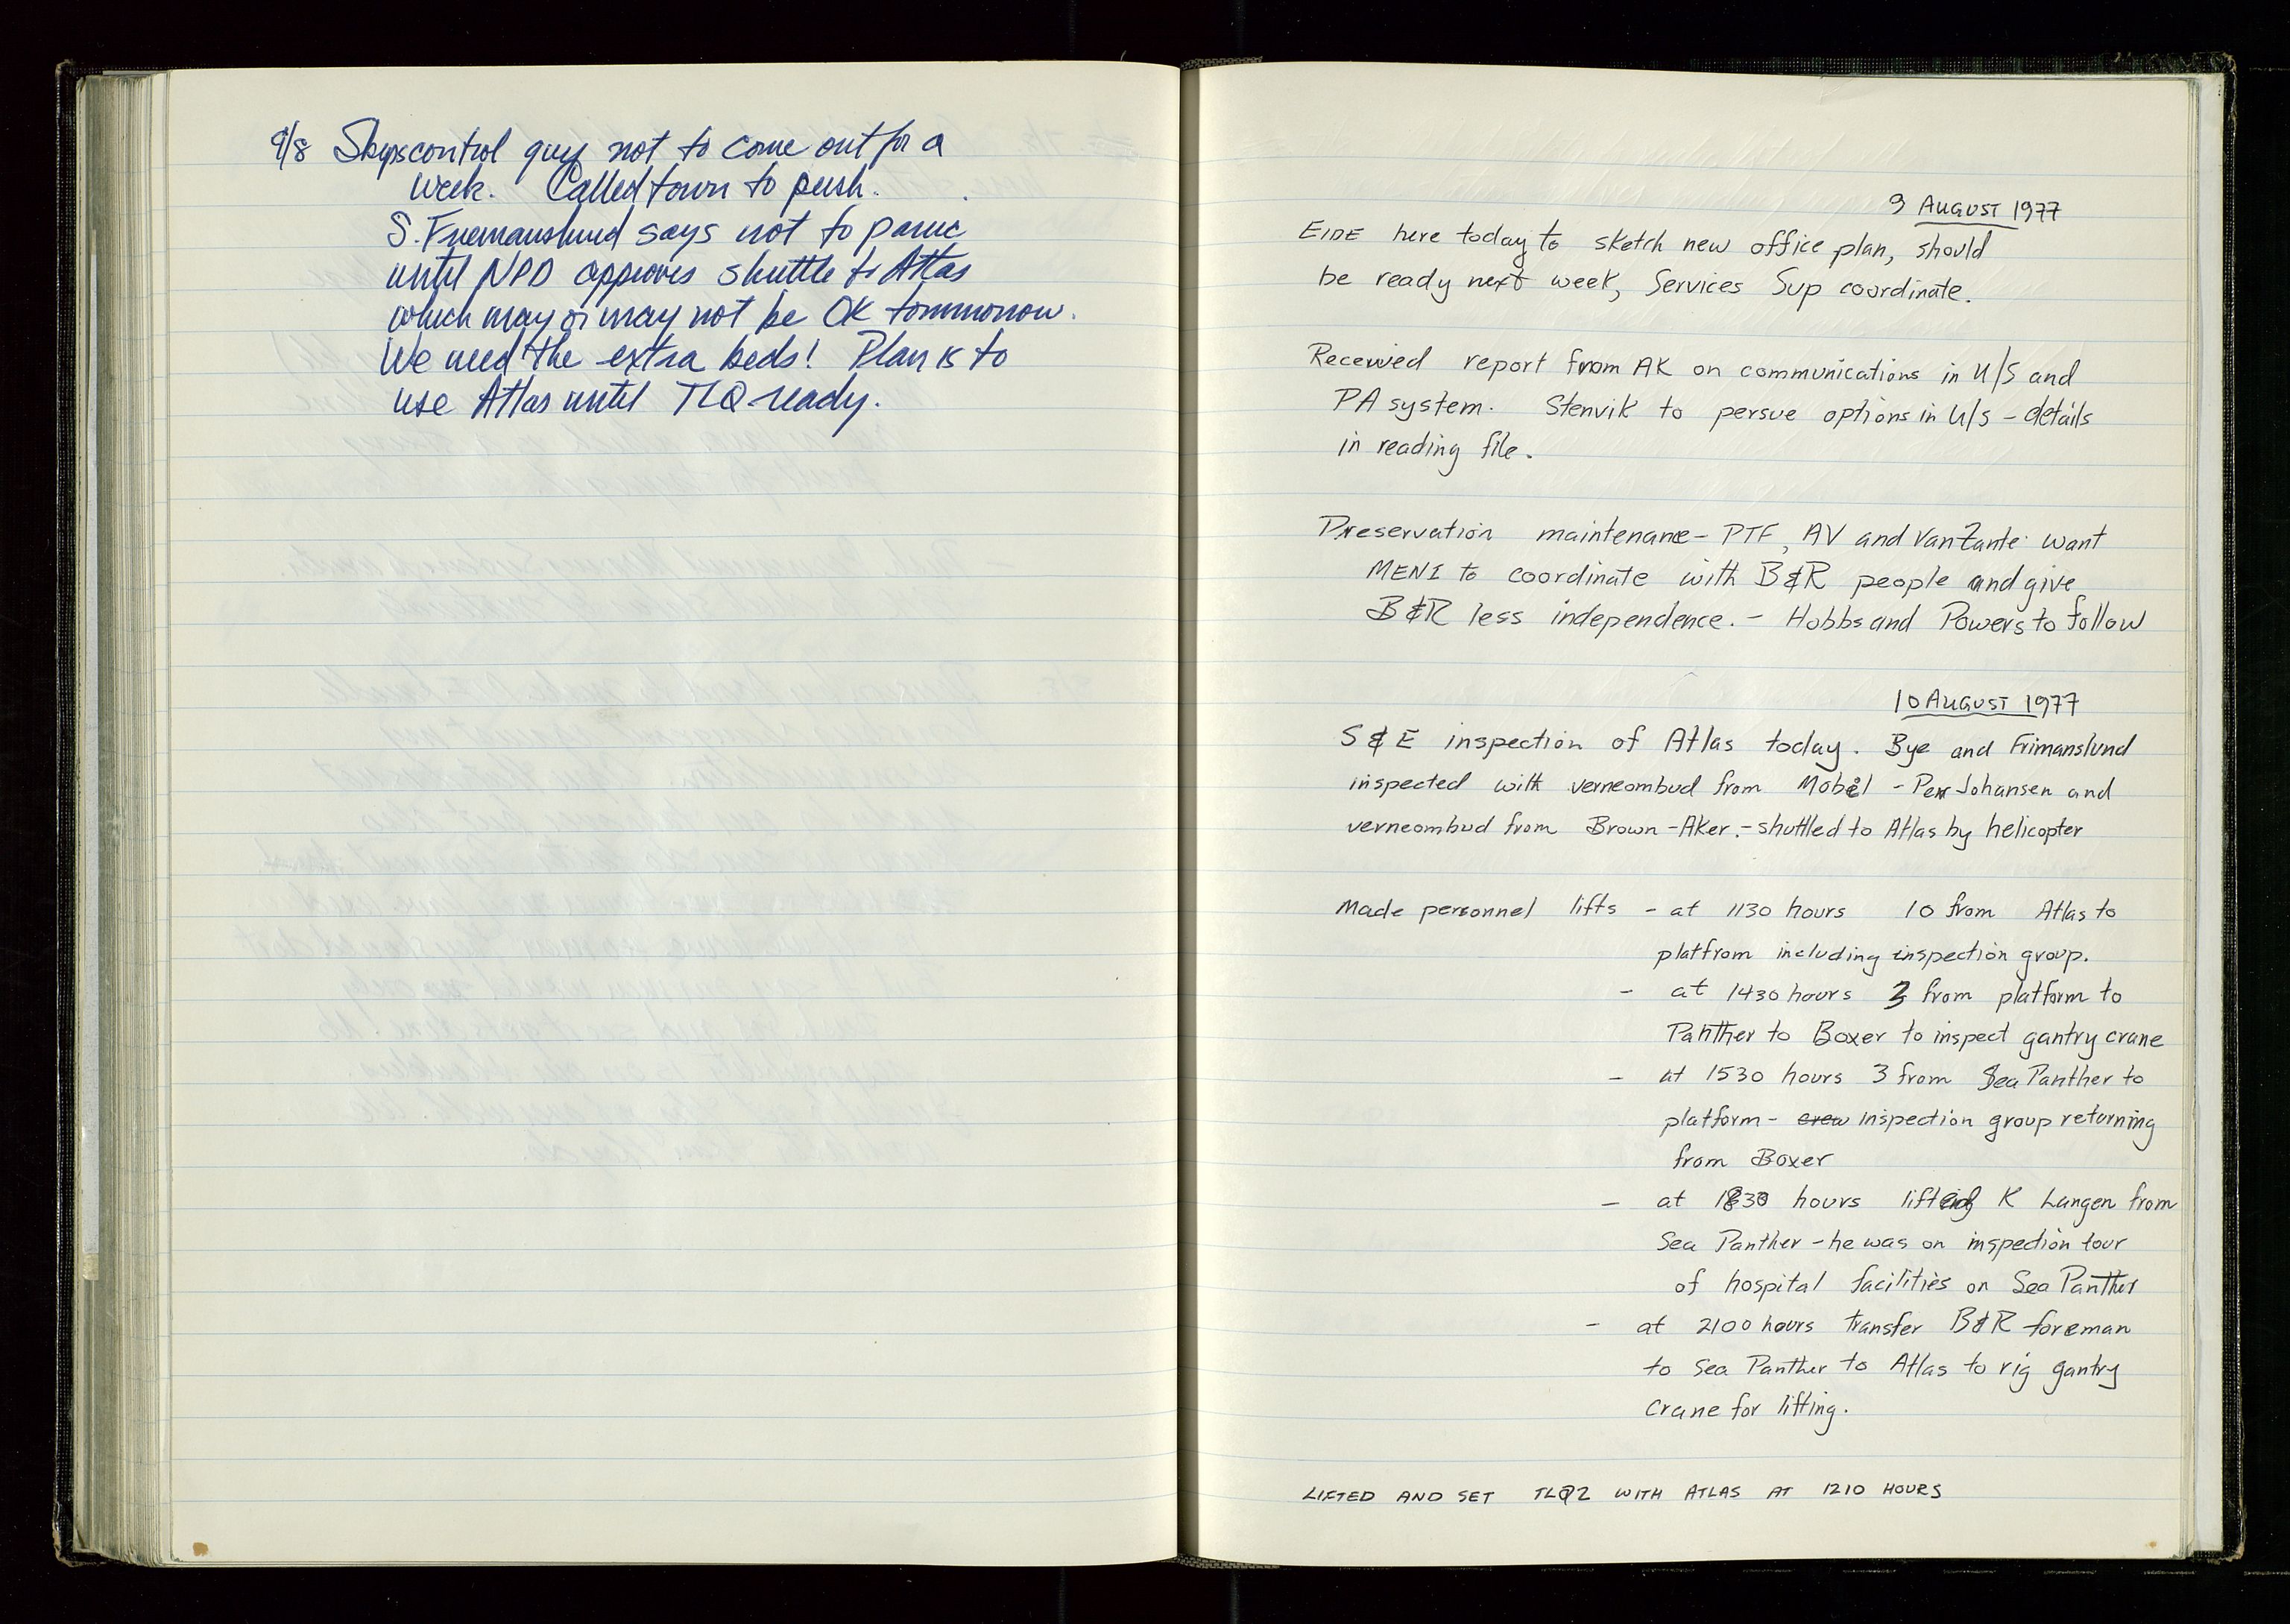 9/8 Skipscontrol guy not to come out for a
week. Called town to push.
S. Friemanslund says not to panic
until NPD approves shuttle to Atlas
which may or may not be OK tommorrow.
We need the extra beds! Plan is to
use Atlas until TLQ ready.
9 AUGUST 1977
EIDE here today to sketch new office plan, should
be ready next week, Services Sup coordinate.
Received report from AK on communications in U/S and
PA system. Stenvik to persue options in U/S - details
in reading file.
Preservation maintenance - PTF, AV and VanZante want
MENI to coordinate with B&R people and give
B&R less independence. - Hobbs and Powers to follow
10 AUGUST 1977
S & E inspection of Atlas today. Bye and Frimanslund
inspected with verneombud from Mobil - Per Johansen and
verneombud from Brown-Aker. - shuttled to Atlas by helicopter
Made personnel lifts - at 1130 hours 10 from Atlas to
platfrom including inspection group.
- at 1430 hours 3 from platform to
Panther to Boxer to inspect gantry crane
- at 1530 hours 3 from Sea Panther to
platform - crew inspection group returning
from Boxer
- at 1830 hours lifted K Langen from
Sea Panther - he was on inspection tour
of hospital facilities on Sea Panther
- at 2100 hours transfer B&R foreman
to Sea Panther to Atlas to rig gantry
crane for lifting.
LIFTED AND SET TLQ2 WITH ATLAS AT 1210 HOURS